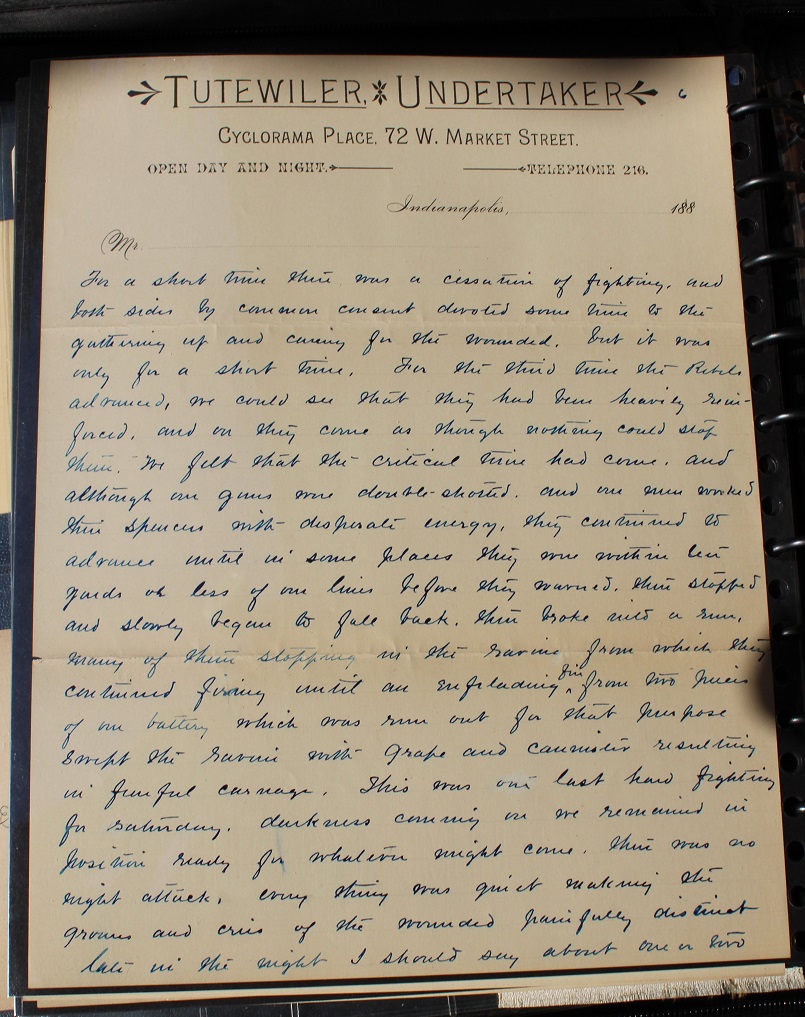 TUTEWILER, UNDERTAKER
6
CYCLORAMA PLACE, 72 W. MARKET STREET.
OPEN DAY AND NIGHT. TELEPHONE 216.
Indianapolis, 188
Mr.
For a short time there was a cessation of fighting, and
both sides by common consent devoted some time to the
gathering up and caring for the wounded. but it was
only for a short time. For the third time the Rebels
advanced, we could see that they had been heavily rein-
forced, and on they come as though nothing could stop
them. We felt that the critical time had come. and
although our guns were double-shotted. and our men worked
their Spencers with desperate energy, they continued to
advance until in some places they were within ten
yards or less of our lines before they wavered. then stopped
and slowly began to fall back. then broke into a run,
many of them stopping in the ravine from which they
continued firing until an enfilading fire from two pieces
of our battery which was run out for that purpose
swept the ravine with grape and cannister resulting
in fearful carnage. This was our last hard fighting
for saturday. darkness coming on we remained in
position ready for whatever might come. there was no
night attack, every thing was quiet making the
groans and cries of the wounded painfully distinct
late in the night I should say about one or two